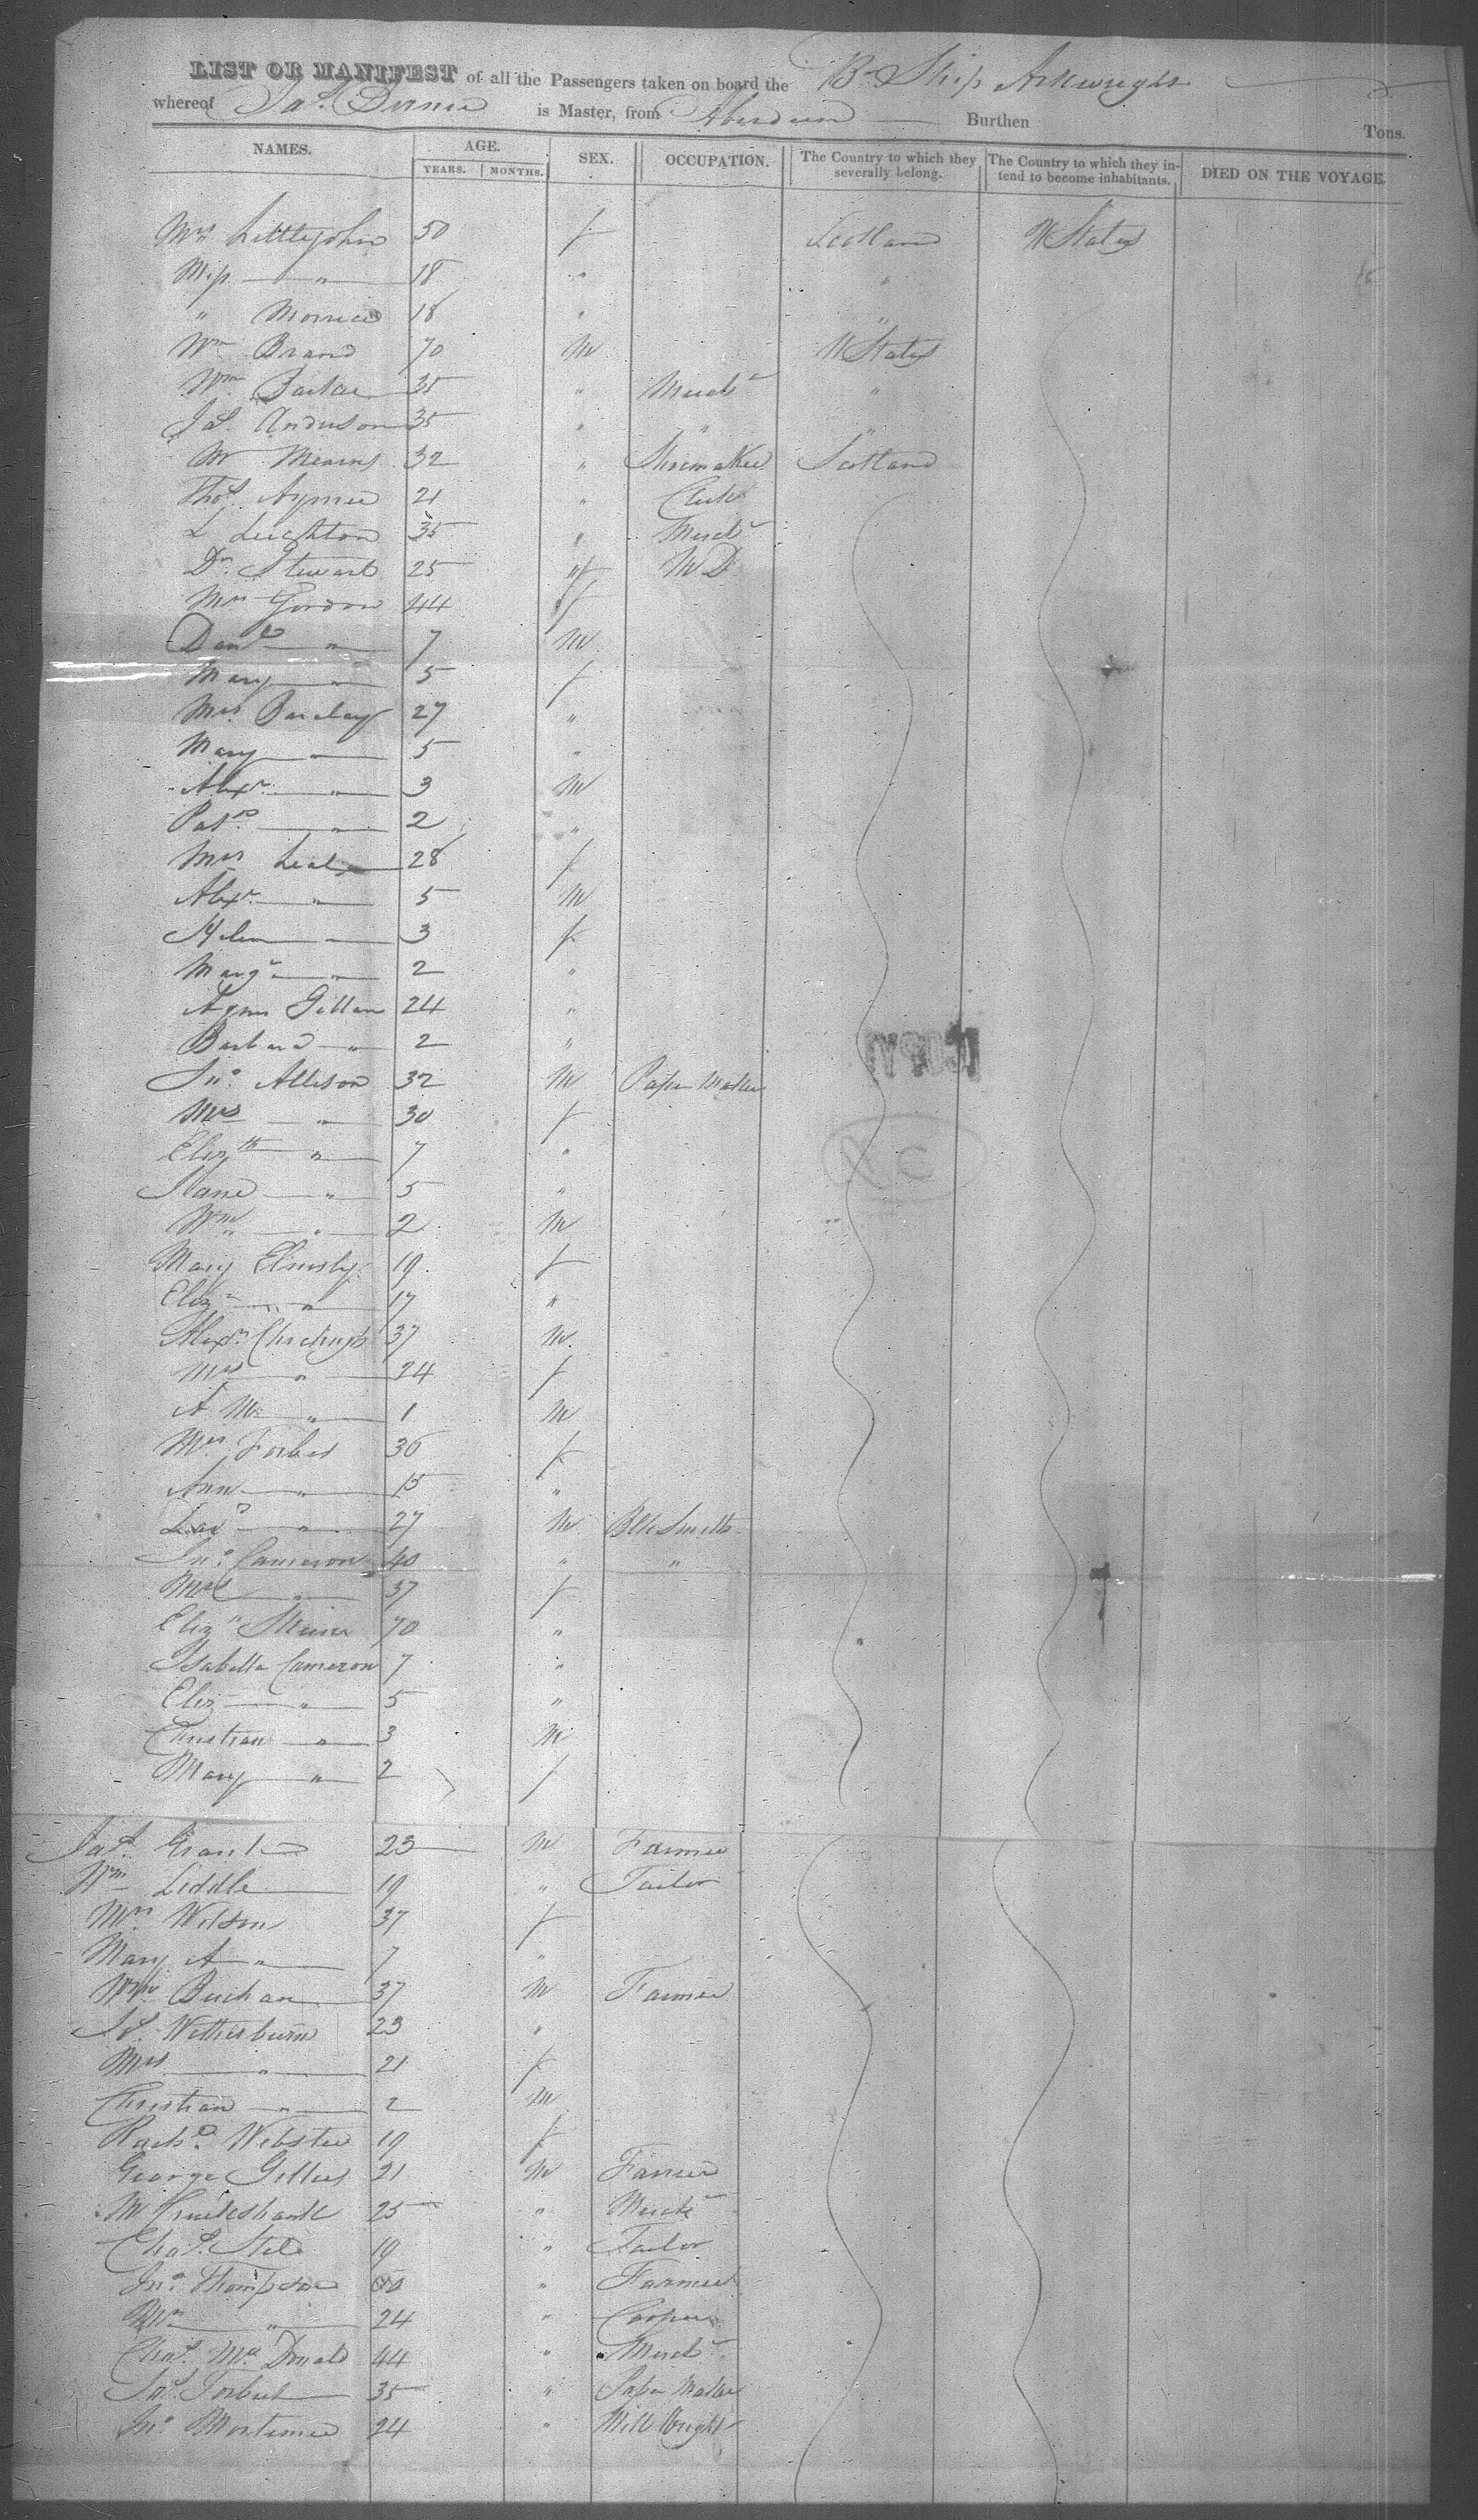 LIST OR MANIFEST of all the Passengers taken on board the Br Ship Arkwright
whereof Jas. Birnie is Master, from Aberdeen Burthen Tons.
NAMES. AGE. SEX. OCCUPATION. The Country to which they severally belong. The Country to which they intend to become inhabitants. DIED ON THE VOYAGE.
YEARS. MONTHS.
Mrs Littlejohn 50 f Scotland U States
Miss " 18 " "
" Morrice 18 " "
Wm Brand 70 M U States
Wm 35 " Mercht "
Jas. Anderson 35 " " "
W Mearns 32 " Shoemaker Scotland
Thos. 21 " Clerk
L Leighton 35 " Mercht
Dr. Stewart 25 M D
Mrs Gordon 44 f
Danl " 7 M
Mary " 5 f
Mrs Barclay 27 "
Mary " 5 "
Alexr " 3 M
Patk " 2 "
Mrs 28 f
Alexr " 5 M
Helen 3 f
Margt " 2 "
Agnes Gillan 24 "
Barbara " 2 "
Jno. Allison 32 M Paper Maker
Mrs " 30 f
Elizth " 7 "
Jane " 5 "
Wm " 2 M
COPY
Mary Elmsly 19 f
Eliz " 17 "
Alexr 37 M
Mrs " 24 f
A M " 1 M
Mrs Forbes 36 f
Ann " 15 "
" 27 M Blk Smith
Jno. Cameron 40 " "
Mrs " 37 f
Eliz 70 "
Isabella Cameron 7 "
Eliz " 5 "
Christian " 3 M
Mary " 2 f
Jas. Grant 23 M Farmer
Wm Liddle 19 " Tailor
Mrs Wilson 37 f
Mary A " 7 "
Wm Buchan 37 M Farmer
Wetherburn 23 "
Mrs " 21 f
Christian " 2 M
Webster 19 f
George Gillies 21 M Farmer
W Cruickshank 25 " Mercht
Chas. Stel 19 " Tailor
Jno. Thompson " Farmer
Wm " 24 " Cooper
Chas. Mc Donald 44 " Mercht
Jas. Forbes 35 " Paper Maker
Jno Mortimer 24 " Mill Wright